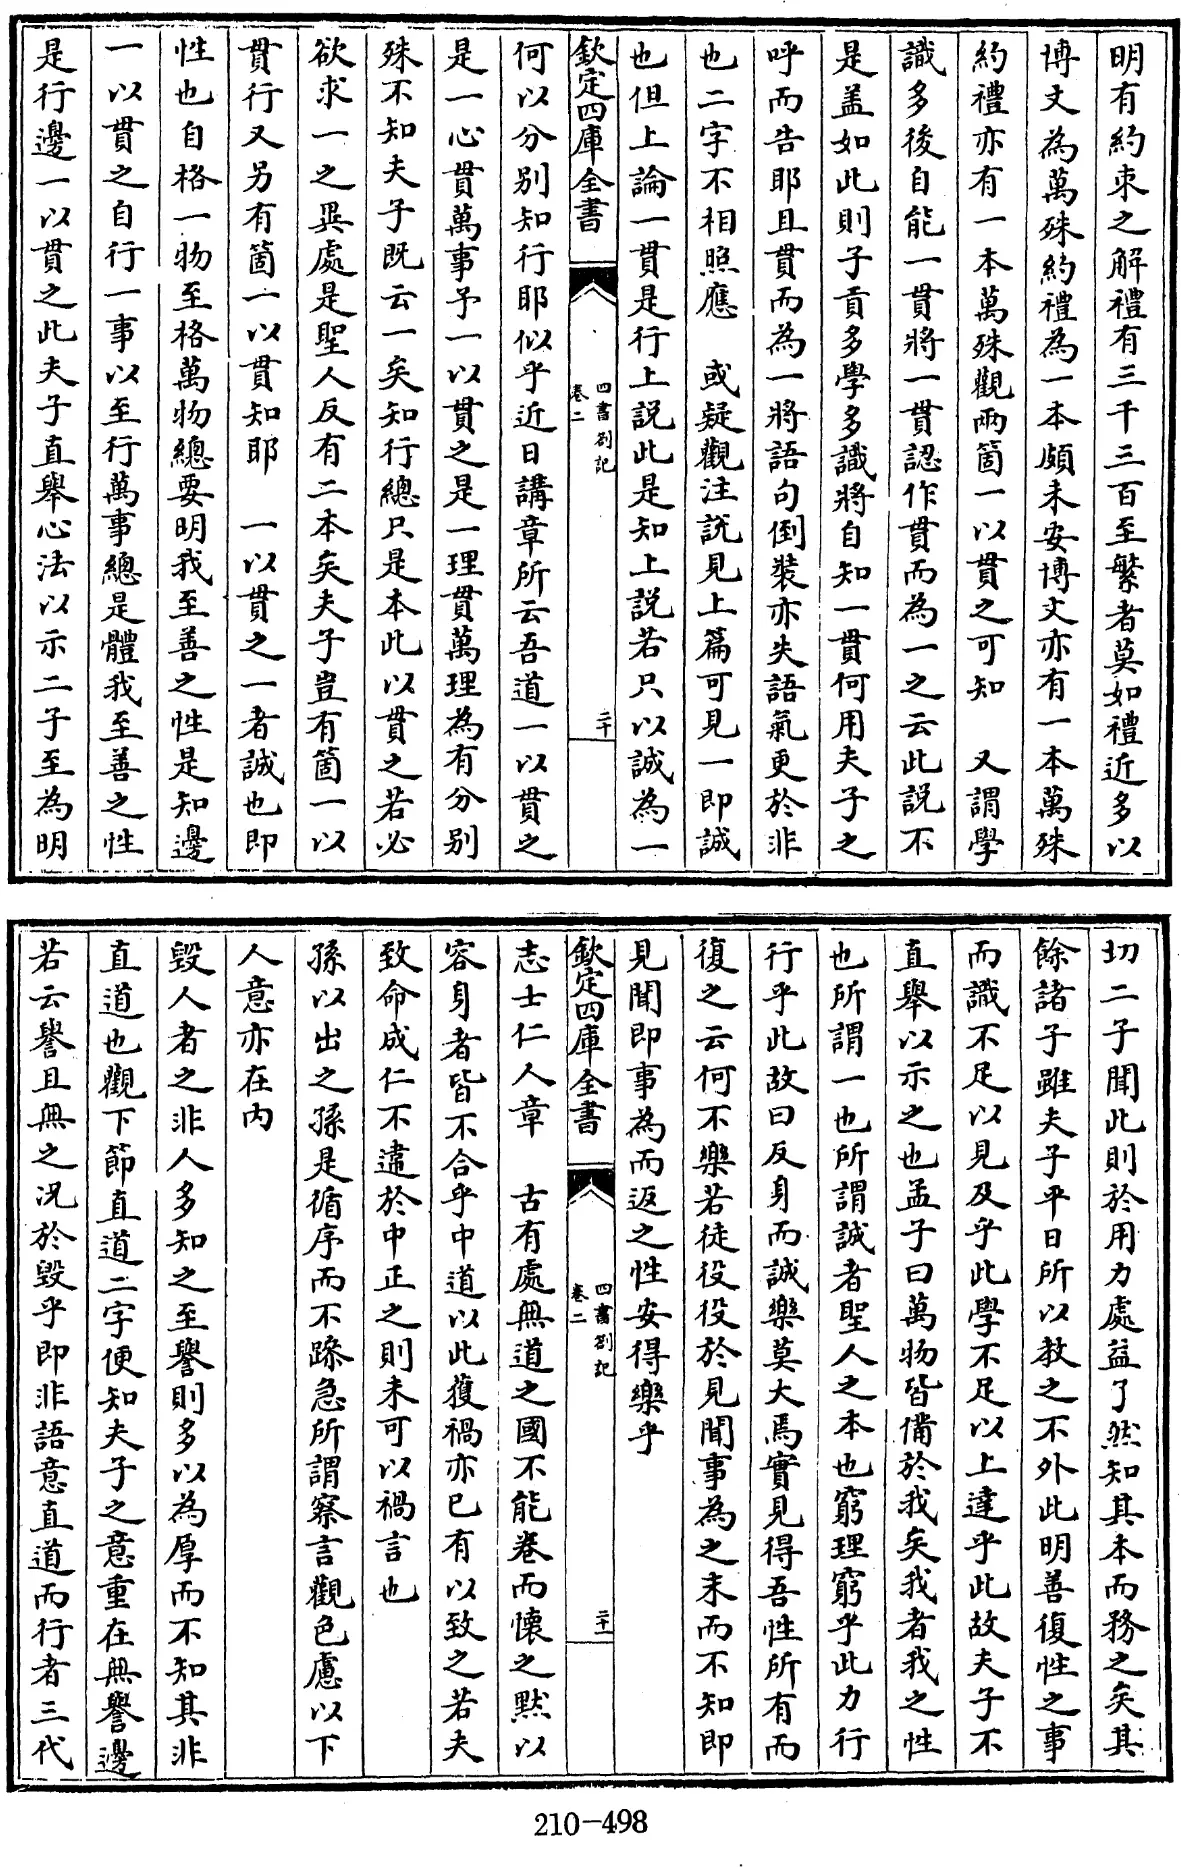 明有約束之解禮有三千三百至繁者莫如禮近多以
博文為萬殊約禮為一本頗未安博文亦有一本萬殊
約禮亦有一本萬殊觀兩箇一以貫之可知　又謂學
識多後自能一貫將一貫認作貫而為一之云此説不
是盖如此則子貢多學多識將自知一貫何用夫子之
呼而告耶且貫而為一將語句倒裝亦失語氣更於非
也二字不相照應　或疑觀注説見上篇可見一即誠
也但上論一貫是行上説此是知上説若只以誠為一
欽定四庫全書
四書劄記
卷二
二十
何以分别知行耶似乎近日講章所云吾道一以貫之
是一心貫萬事予一以貫之是一理貫萬理為有分别
殊不知夫子既云一矣知行總只是本此以貫之若必
欲求一之異處是聖人反有二本矣夫子豈有箇一以
貫行又另有箇一以貫知耶　一以貫之一者誠也即
性也自格一物至格萬物總要明我至善之性是知邊
一以貫之自行一事以至行萬事總是體我至善之性
是行邊一以貫之此夫子直舉心法以示二子至為明
切二子聞此則於用力處益了然知其本而務之矣其
餘諸子雖夫子平日所以教之不外此明善復性之事
而識不足以見及乎此學不足以上達乎此故夫子不
直舉以示之也孟子曰萬物皆備於我矣我者我之性
也所謂一也所謂誠者聖人之本也窮理窮乎此力行
行乎此故曰反身而誠樂莫大焉實見得吾性所有而
復之云何不樂若徒役役於見聞事為之末而不知即
見聞即事為而返之性安得樂乎
欽定四庫全書
四書劄記
卷二
二十一
志士仁人章　古有處無道之國不能卷而懷之黙以
容身者皆不合乎中道以此獲禍亦已有以致之若夫
致命成仁不違於中正之則未可以禍言也
孫以出之孫是循序而不躁急所謂察言觀色慮以下
人意亦在内
毁人者之非人多知之至譽則多以為厚而不知其非
直道也觀下節直道二字便知夫子之意重在無譽邊
若云譽且無之况於毁乎即非語意直道而行者三代
210-498